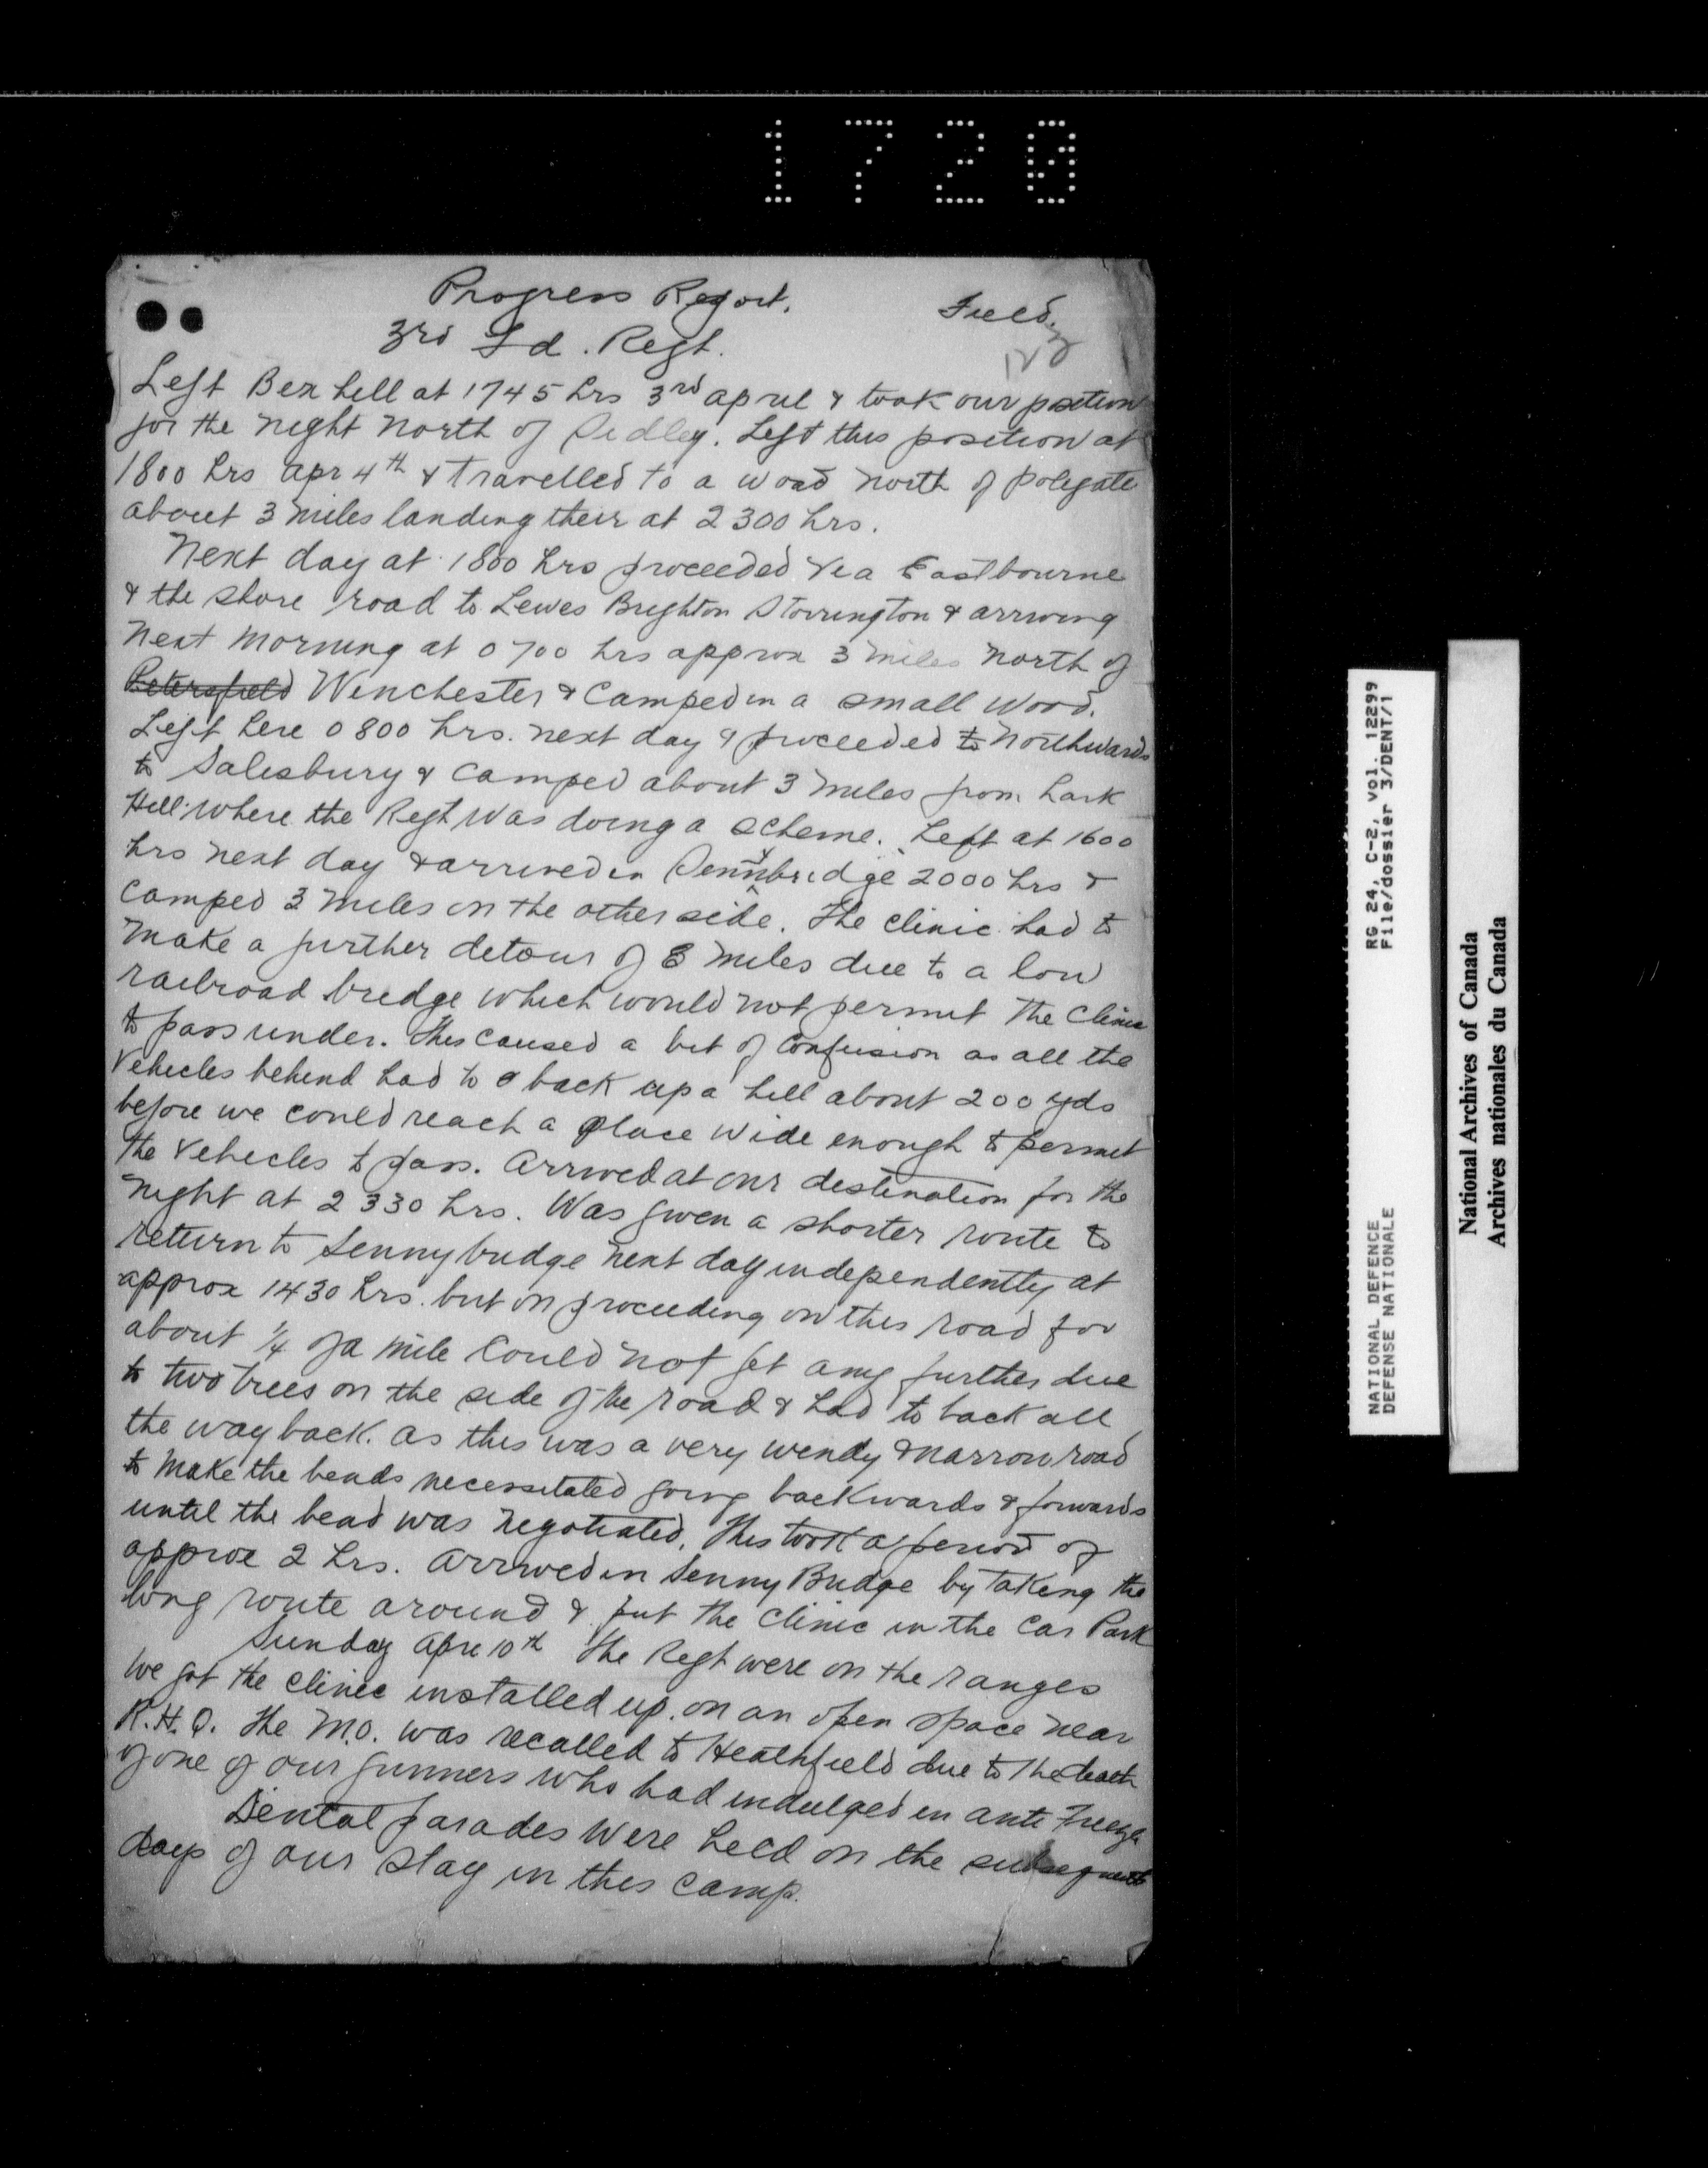 1720
Progress Report. Field.
3rd Fd. Regt.
Left Bexhill at 1745 hrs 3rd april & took our position
for the night North of Sidley. Left this position at
1800 hrs apr 4th & travelled to a wood north of Polegate
about 3 miles landing their at 2300 hrs.
Next day at 1800 hrs proceeded via Eastbourne
& the shore road to Lewes Brighton Storrington & arriving
Next morning at 0700 hrs approx 3 miles North of
Petersfield Winchester & Camped in a small Wood.
Left here 0800 hrs. next day & proceeded to Northwards
to Salisbury & camped about 3 miles from Lark
Hill where the Regt was doing a scheme. Left at 1600
hrs next day & arrived in Sennybridge 2000 hrs &
camped 3 miles on the other side. The clinic had to
make a further detour of 8 miles due to a low
railroad bridge which would not permit the Clinic
to pass under. This caused a bit of confusion as all the
Vehicles behind had to back up a hill about 200 yds
before we could reach a place wide enough to permit
the Vehicles to pass. Arrived at our destination for the
night at 2330 hrs. Was given a shorter route to
return to Sennybridge next day independently at
approx 1430 hrs. but on proceeding on this road for
about 1/4 of a mile could not get any further due
to two trees on the side of the road & had to back all
the way back. as this was a very windy & narrow road
to make the bends necessitated going backwards & forwards
until the bend was negotiated. This took a period of
approx 2 hrs. Arrived in Senny Bridge by taking the
long route around & put the clinic in the Car Park
Sunday Apre 10th The Regt were on the ranges
we got the clinic installed up on an open space near
R.H.Q. The M.O. was recalled to Heathfield due to the death
of one of our gunners who had indulged in anti Freeze
Dental parades were held on the subsequent
days of our stay in this camp.
RG 24, C-2, vol. 12299
File/dossier 3/DENT/1
NATIONAL DEFENCE
DEFENSE NATIONALE
National Archives of Canada
Archives nationales du Canada